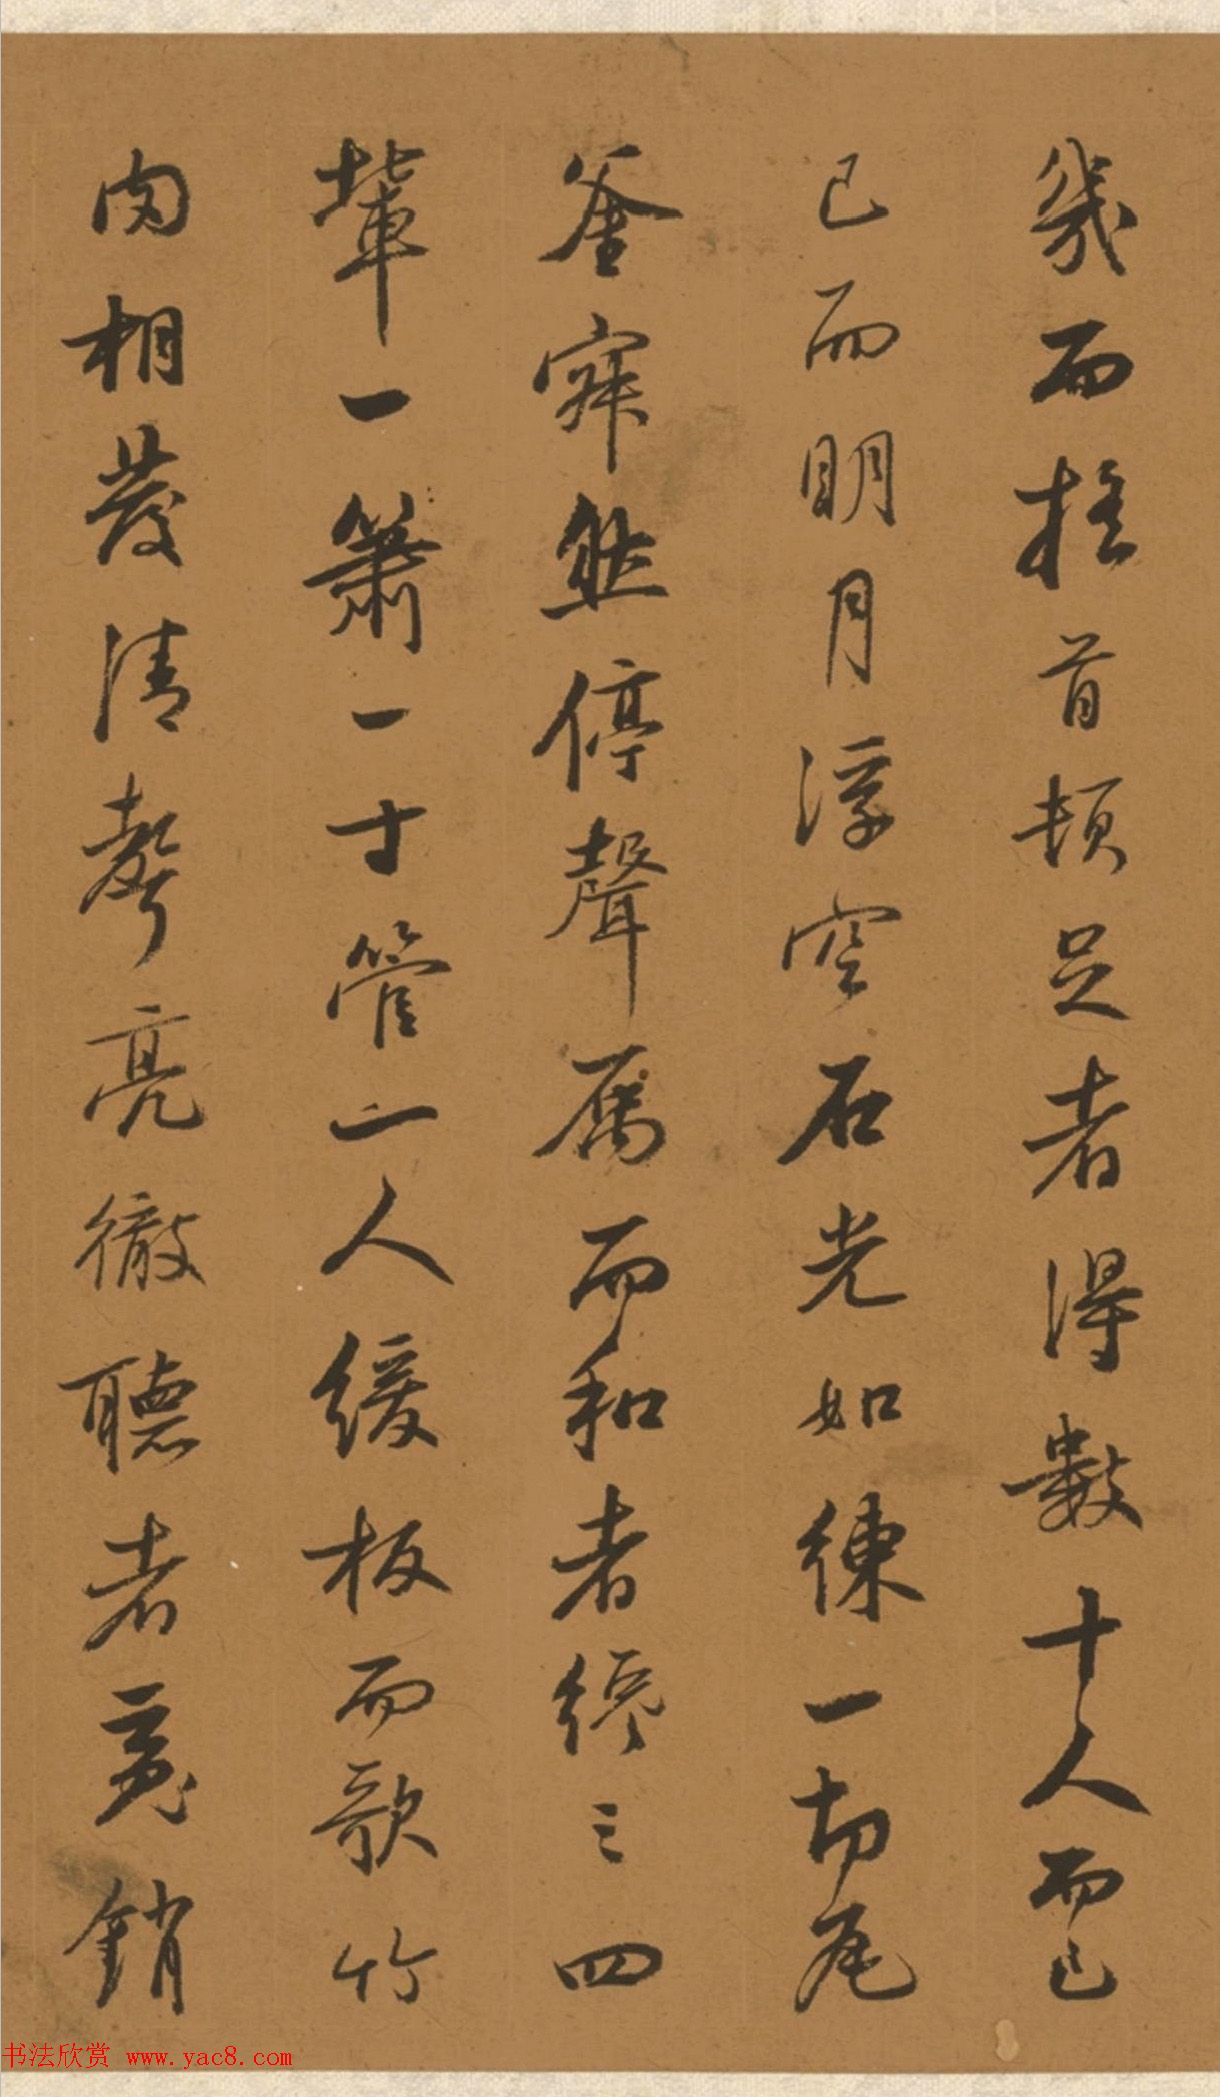 幾而搖首頓足者得數十人而已
已而明月浮空石光如練一切瓦
釜寂然停聲属而和者纔三四
輩一簫一寸管一人緩板而歌竹
肉相發清聲亮徹聽者寬銷
书法欣赏 www.yac8.com